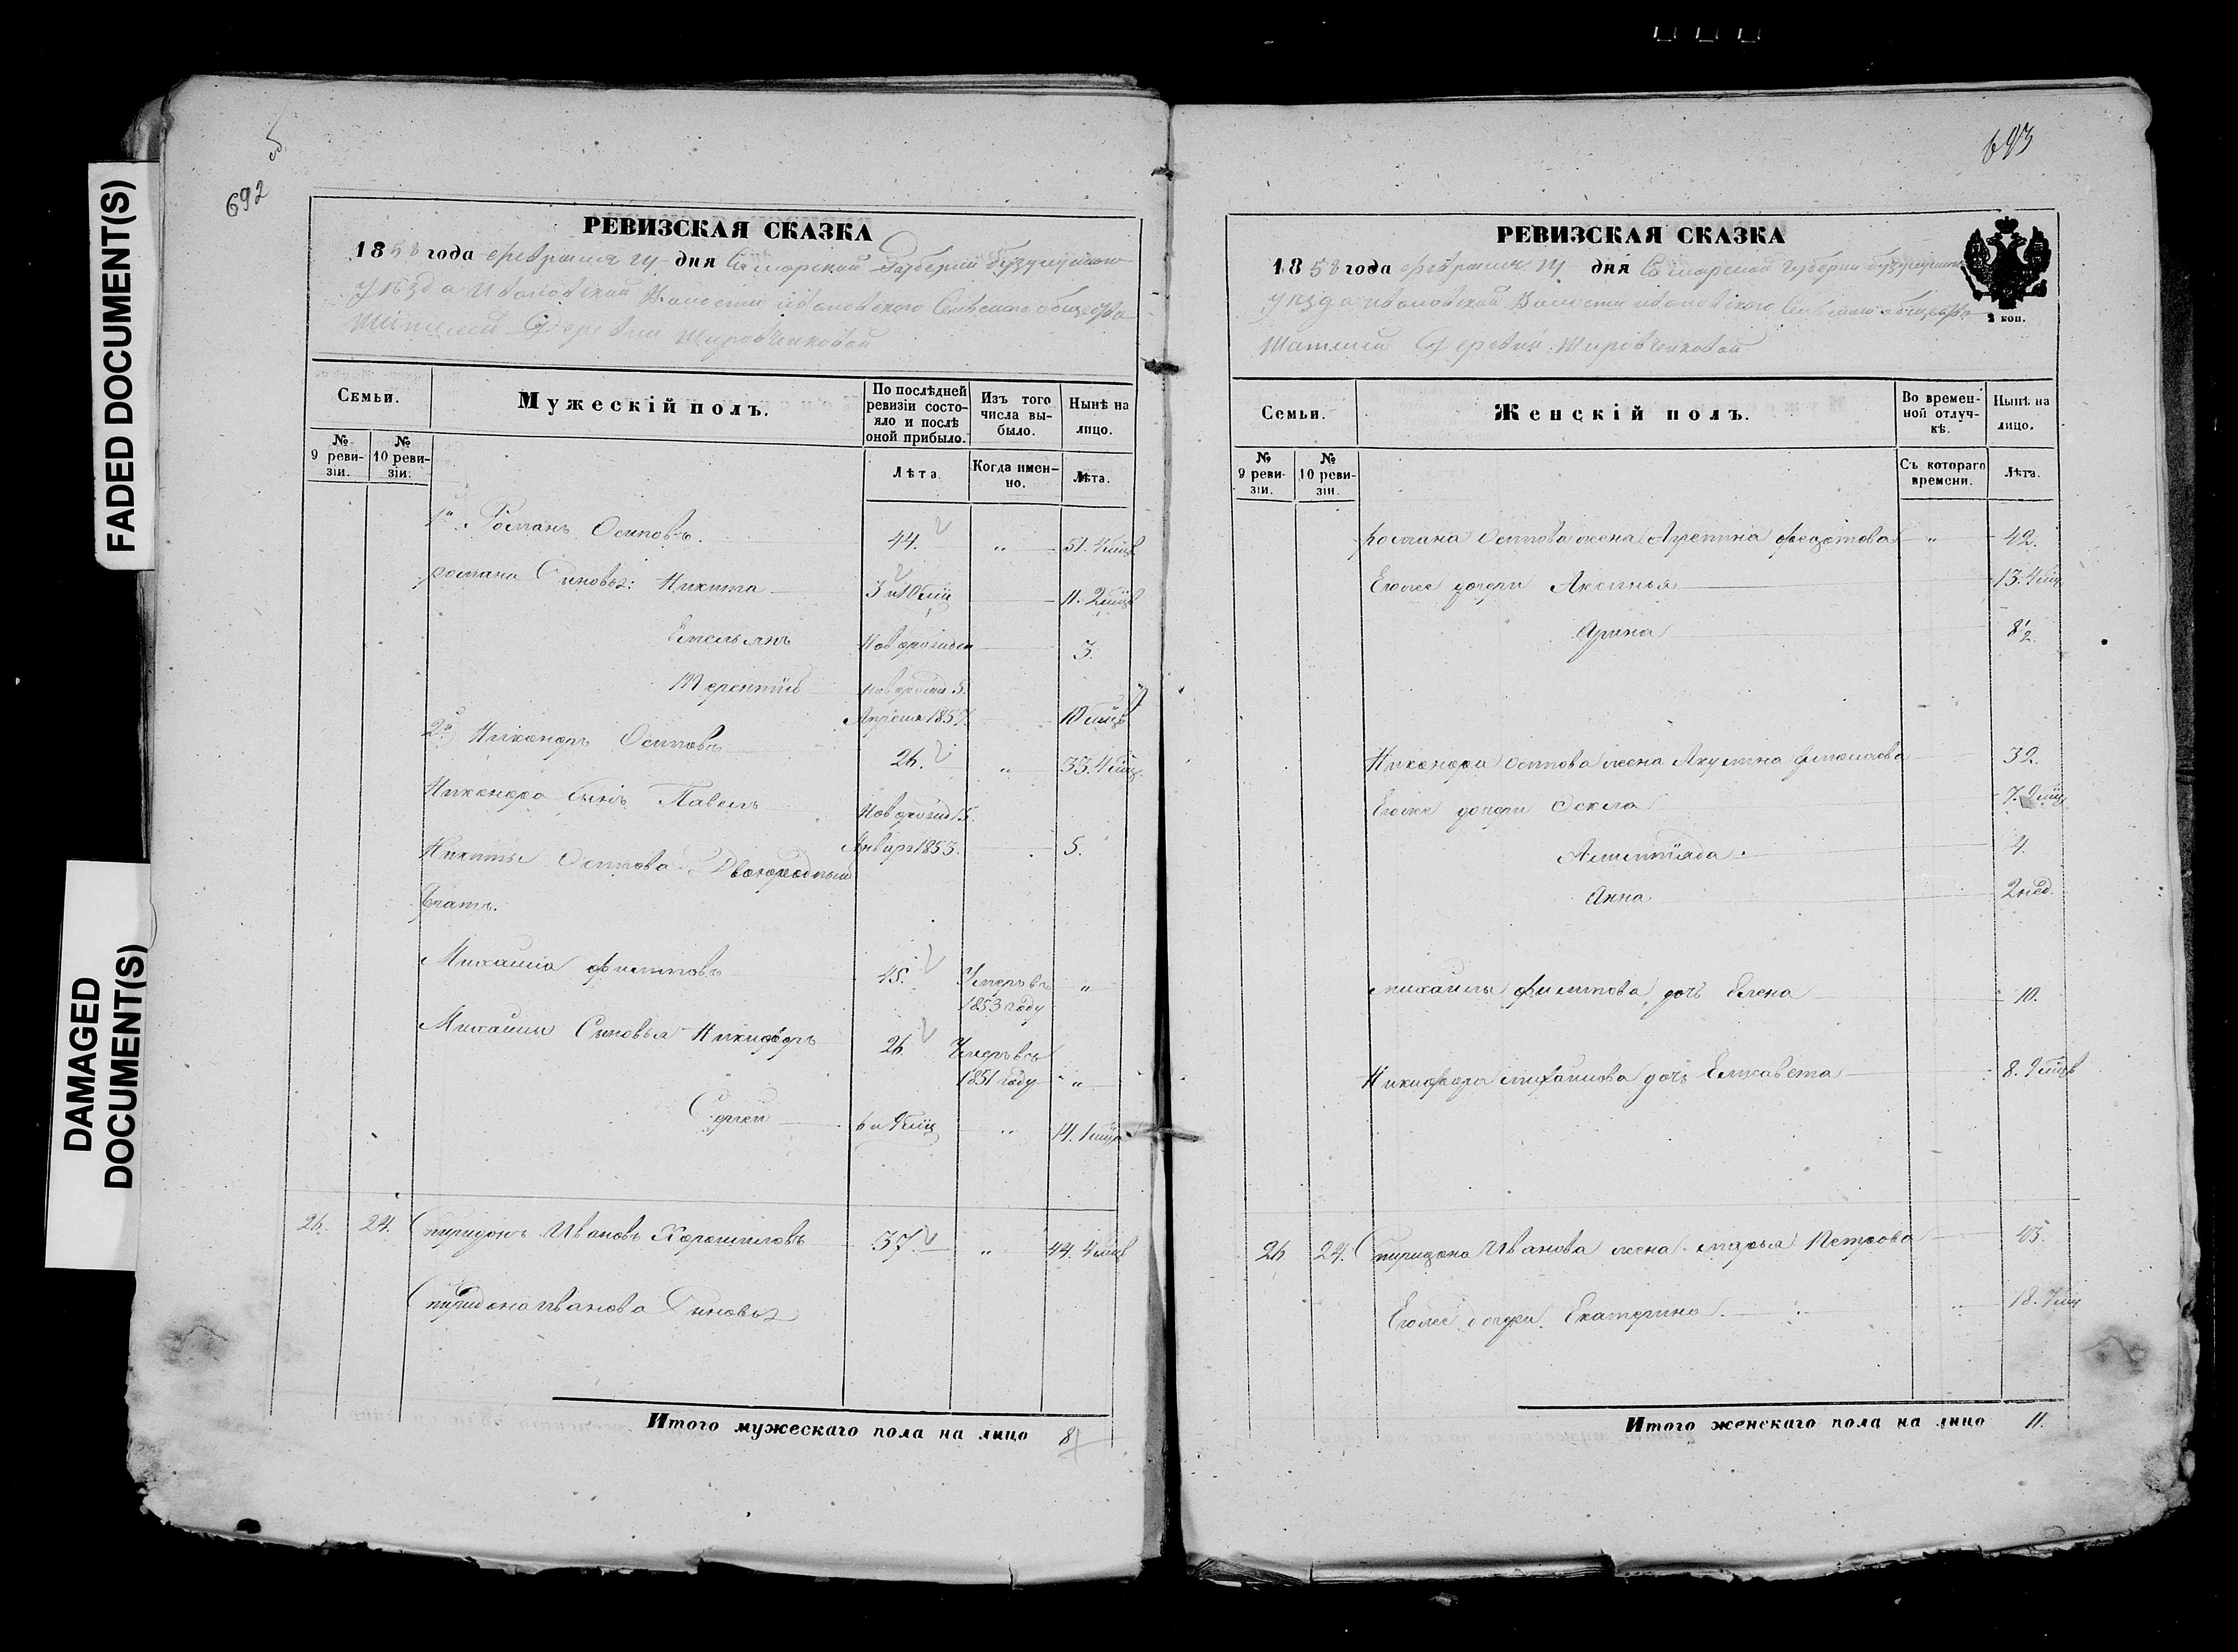 FADED DOCUMENT(S)
DAMAGED
DOCUMENT(S)
об.
692
РЕВИЗСКАЯ СКАЗКА
1858 года февраля 14 дня Самарской Губернии бузулукского
уезда Ивановской Волости ивановского Сельского общества
Деревни
Семьи.
Мужескій полъ.
По послѣдней
ревизіи состо-
яло и послѣ
оной прибыло.
Изъ того
числа вы-
было.
Нынѣ на
лицо.
№
9 реви-
зіи.
№
10 реви-
зіи.
Лѣта
Когда имен-
но.
Лѣта.
1й Романъ Осиповъ. 44. " 51. 4 мцв
Романа Синовья: Никита 3 и 10 мц 11. 2 мцв
Емельянъ Новорожден 3.
Терентий Новорожд 5.
Апреля 1857. 10 мцв
2й Никаноръ Осиповъ 26. " 33. 4 мц.
Никанора Сынъ Павелъ Новорожд 15.
Январ 1853. 5.
Никиты Осипова Двоюродный
Братъ.
Михаила Филиповъ 45. Умеръ въ "
1853 году
Михаилы Сыновья Никифоръ 26 Умеръ въ
1851 году "
Сергей 6 и 9 мц " 14. 1 мця
26. 24. Спиридонъ Ивановъ 37. " 44. 4 мцв
Спиридона Иванова Синовья
Итого мужескаго пола на лицо 8
693
РЕВИЗСКАЯ СКАЗКА
2 коп.
1858 года февраля 14 дня Самарской Губернии бузулукского
уезда ивановской Волости ивановского Сельского общества
Деревни
Семьи.
Женскій полъ.
Во времен-
ной отлуч-
кѣ.
Нынѣ на
лицо.
№
9 реви-
зіи.
№
10 реви-
зіи.
Съ котораго
времени.
Лѣта.
Романа Осипова жена Агрепина Федотова " 42.
Егоже дочери Аксинья 13. 4 мц
Арина 8 1/2
Никанора Осипова жена Акулина 32.
Егоже дочери Фекла 7. 9 мц
4.
Анна 2 нед.
Михаилы Филипова дочь Елена 10.
Никифора Михайлова дочь Елисавета 8. 9 мцв
26 24. Спиридона Иванова жена Марья Петрова 45.
Егоже дочери Екатерина " 18. 7 мц
Итого женскаго пола на лицо 11.